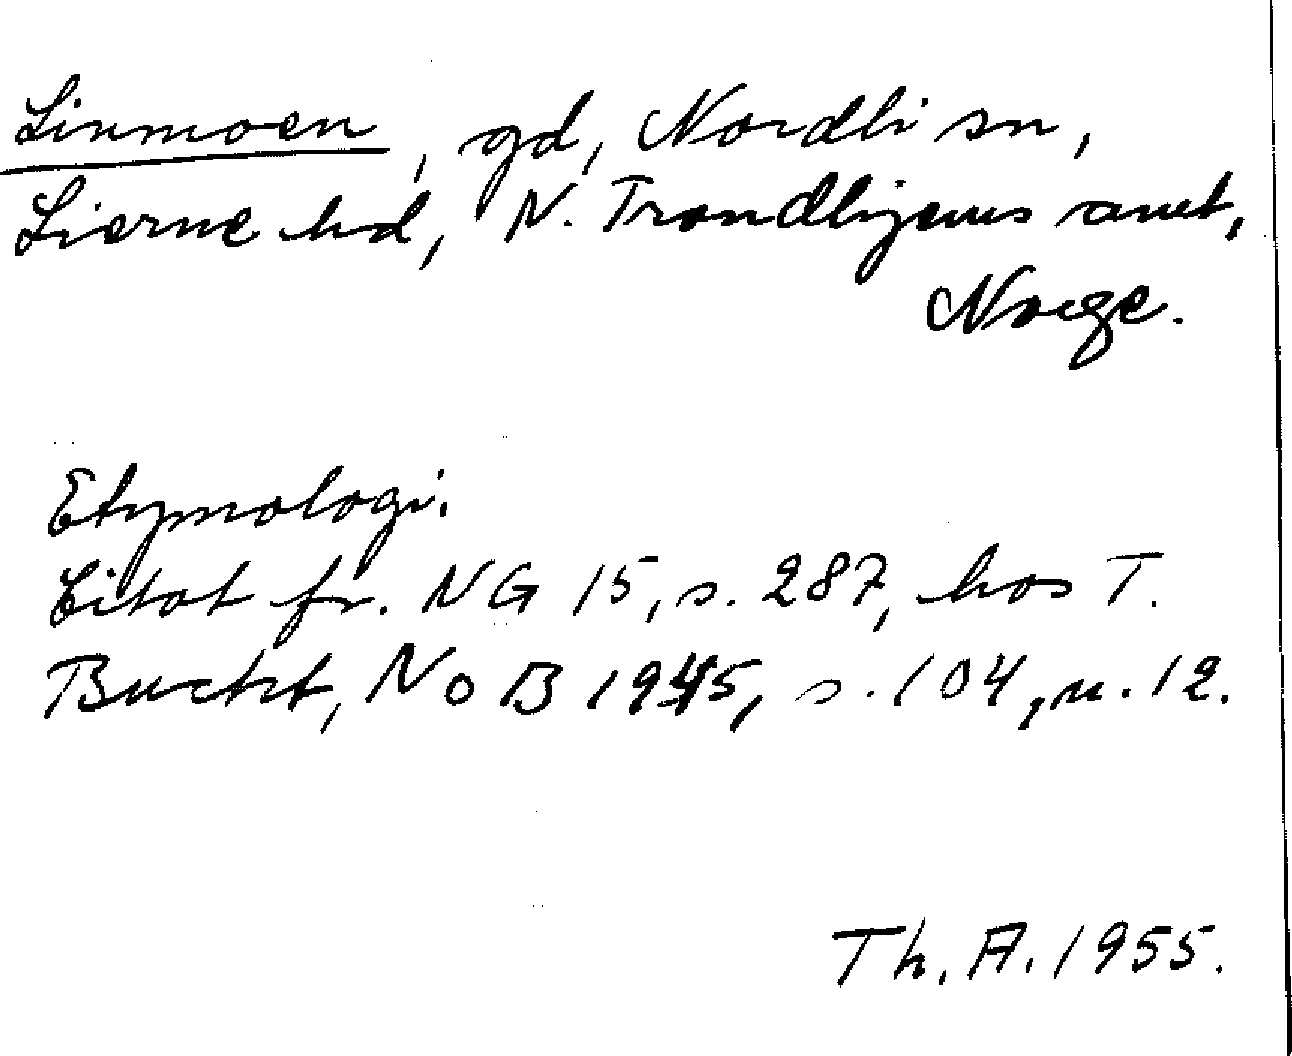 Linmoen, gd, Nordli sn,
Lierne hd, N. Trondhjems amt,
Norge.
Etymologi.
Citat fr. NG 15, s. 287, hos T.
Bucht, NoB 1945, s. 104, n. 12.
Th. A. 1955.